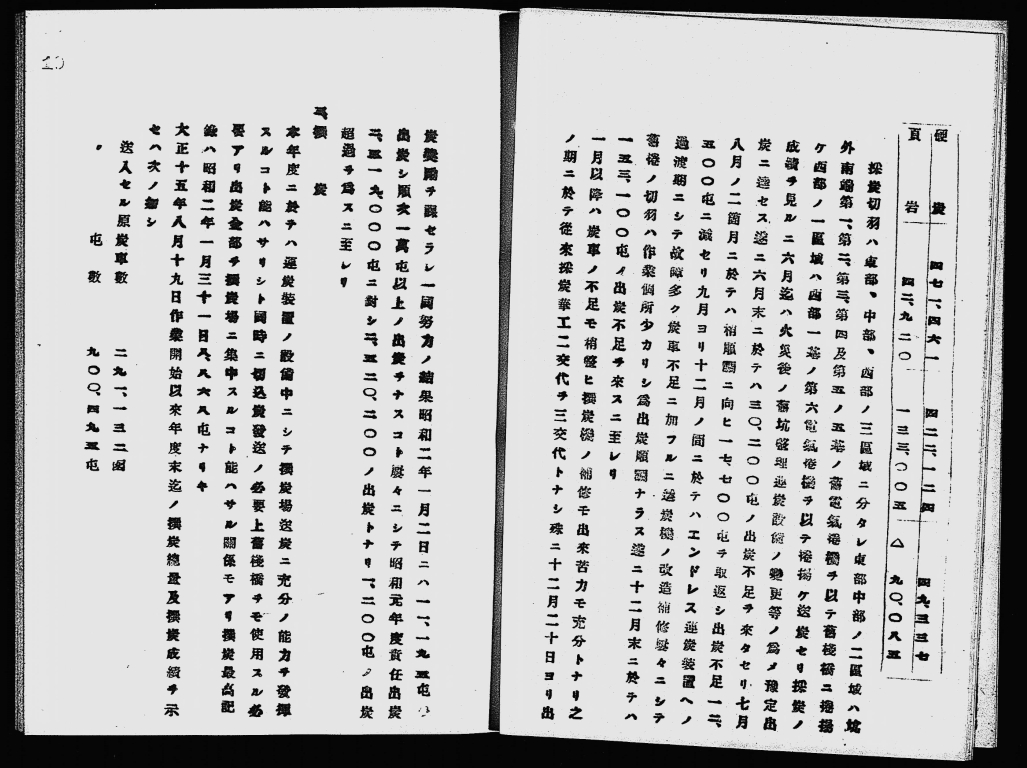 硬炭 四七一、四六一 四二二、一二四 四九、三三七
頁岩 四二、九二〇 一三三、〇〇五 △ 九〇、〇八五
採炭切羽ハ東部、中部、西部ノ三區域ニ分タレ東部中部ノ二區域ハ坑
外南端第一、第二、第三、第四及第五ノ五基ノ舊電氣捲機ヲ以テ舊棧橋ニ捲揚
ケ西部ノ一區域ハ西部一基ノ第六電氣捲機ヲ以テ捲揚ケ送炭セリ採炭ノ
成績ヲ見ルニ六月迄ハ火災後ノ舊坑整理運炭設備ノ變更等ノ爲メ豫定出
炭ニ達セス遂ニ六月末ニ於テハ三〇、二〇〇屯ノ出炭不足ヲ來タセリ七月
八月ノ二箇月ニ於テハ稍順調ニ向ヒ一七、七〇〇屯ヲ取返シ出炭不足一二、
五〇〇屯ニ減セリ九月ヨリ十二月ノ間ニ於テハエンドレス運炭裝置ヘノ
過渡期ニシテ故障多ク炭車不足ニ加フルニ選炭機ノ改造補修屢々ニシテ
舊捲ノ切羽ハ作業個所少カリシ爲出炭順調ナラス遂ニ十二月末ニ於テハ
一五三、一〇〇屯ノ出炭不足ヲ來スニ至レリ
一月以降ハ炭車ノ不足モ稍整ヒ撰炭機ノ補修モ出來苦力モ充分トナリ之
ノ期ニ於テ從來採炭華工二交代ヲ三交代トナシ殊ニ十二月二十日ヨリ出
炭奬勵ヲ課セラレ一同努力ノ結果昭和二年一月二日ニハ一一、一九五屯ノ
出炭シ順次一萬屯以上ノ出炭ヲナスコト屢々ニシテ昭和元年度責任出炭
二、五一九、〇〇〇屯ニ對シ二、五二〇、二〇〇ノ出炭トナリ一、二〇〇屯ノ出炭
超過ヲ爲スニ至レリ
三、撰炭
本年度ニ於テハ運炭裝置ノ設備中ニシテ撰炭場送炭ニ充分ノ能力ヲ發揮
スルコト能ハサリシト同時ニ切込炭發送ノ必要上舊棧橋ヲモ使用スル必
要アリ出炭全部ヲ撰炭場ニ集中スルコト能ハサル關係モアリ撰炭最高記
錄ハ昭和二年一月三十一日八、八六八屯ナリキ
大正十五年八月十九日作業開始以來年度末迄ノ撰炭總量及撰炭成績ヲ示
セハ次ノ如シ
送入セル原炭車數 二九一、一三二凾
〃 屯數 九〇〇、四九五屯